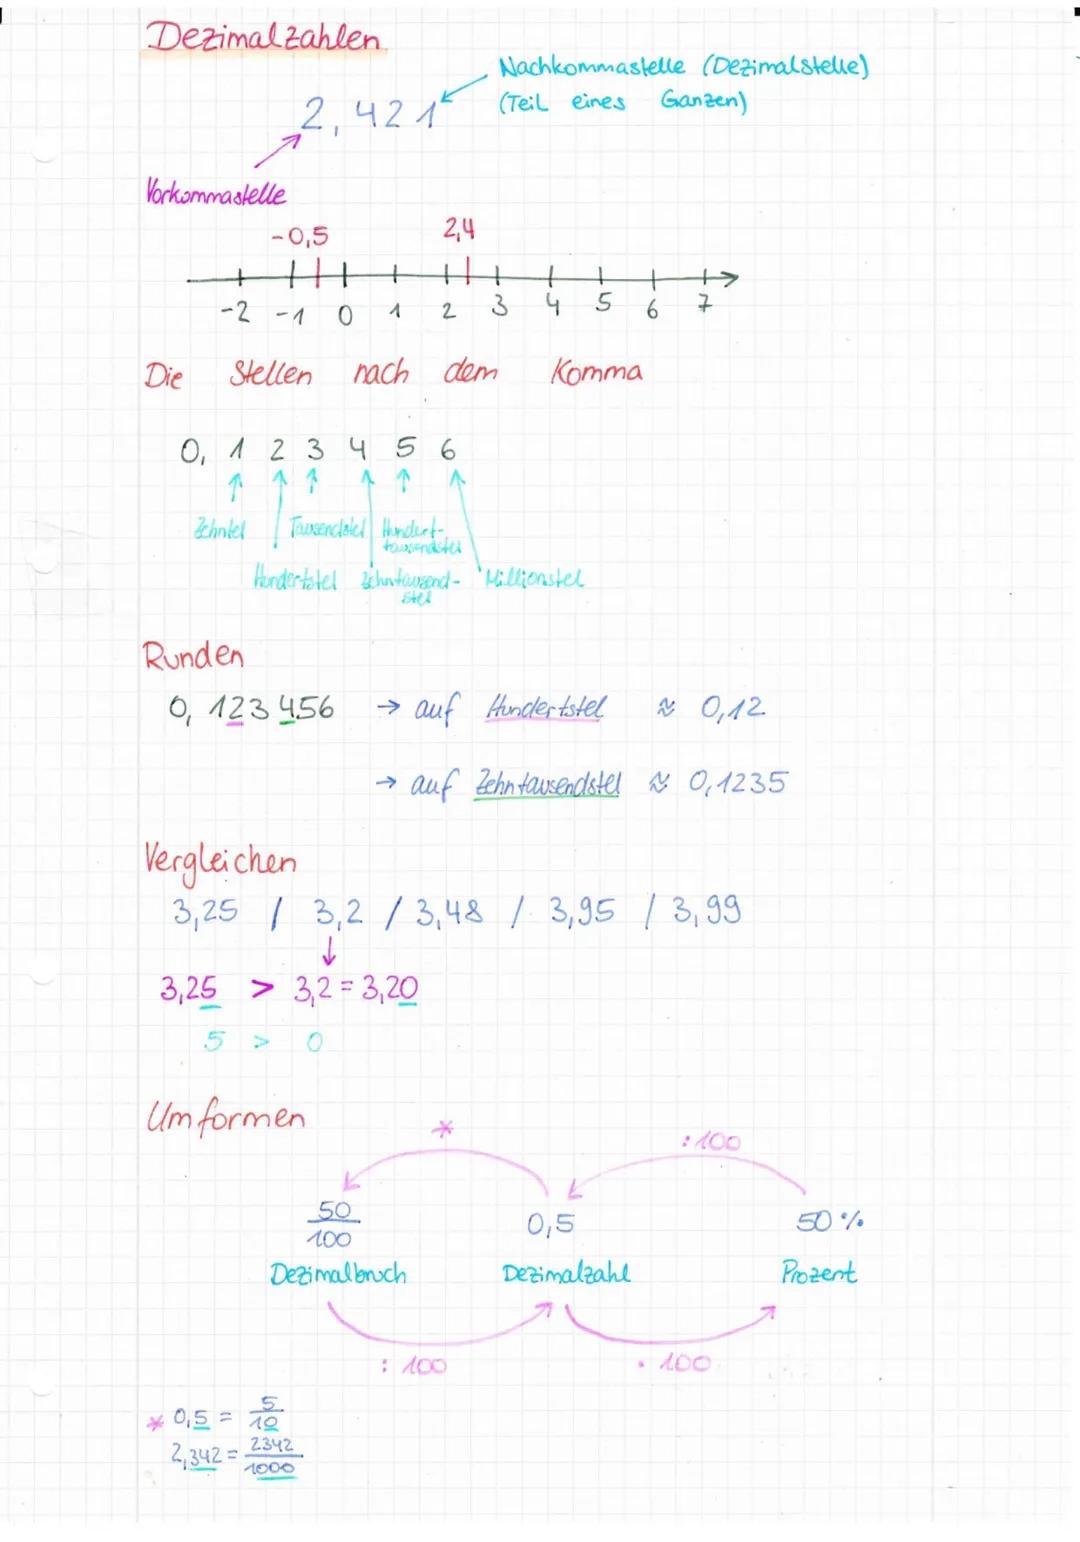 Dezimalzahlen
Nachkommastelle (Dezimalstelle)
(Teil eines Ganzen)
2,421
Vorkommastelle
-0,5 2,4
-2 -1 0 1 2 3 4 5 6 7
Die Stellen nach dem Komma
0, 1 2 3 4 5 6
Zehntel Tausendstel Hundert-
tausendstel
Hundertstel Zehntausend- Millionstel
stel
Runden
0, 123 456 → auf Hundertstel ≈ 0,12
→ auf Zehntausendstel ≈ 0,1235
Vergleichen
3,25 / 3,2 / 3,48 / 3,95 / 3,99
↓
3,25 > 3,2 = 3,20
5 > 0
Umformen
* :100
50/100 0,5 50 %
Dezimalbruch Dezimalzahl Prozent
: 100 · 100
* 0,5 = 5/10
2,342 = 2342/1000